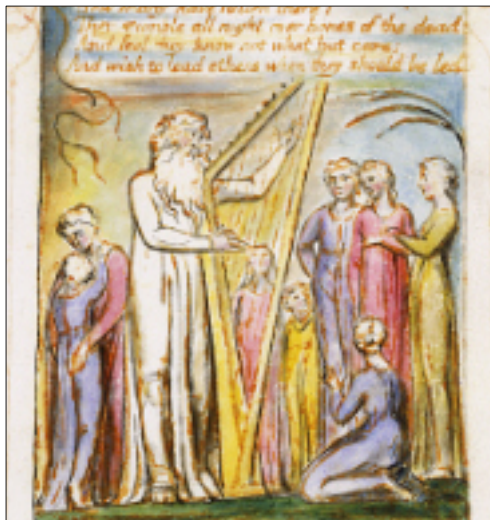 many have fallen there!
They stumble all night over bones of the dead
And feel they know not what but care;
And wish to lead others when they should be led